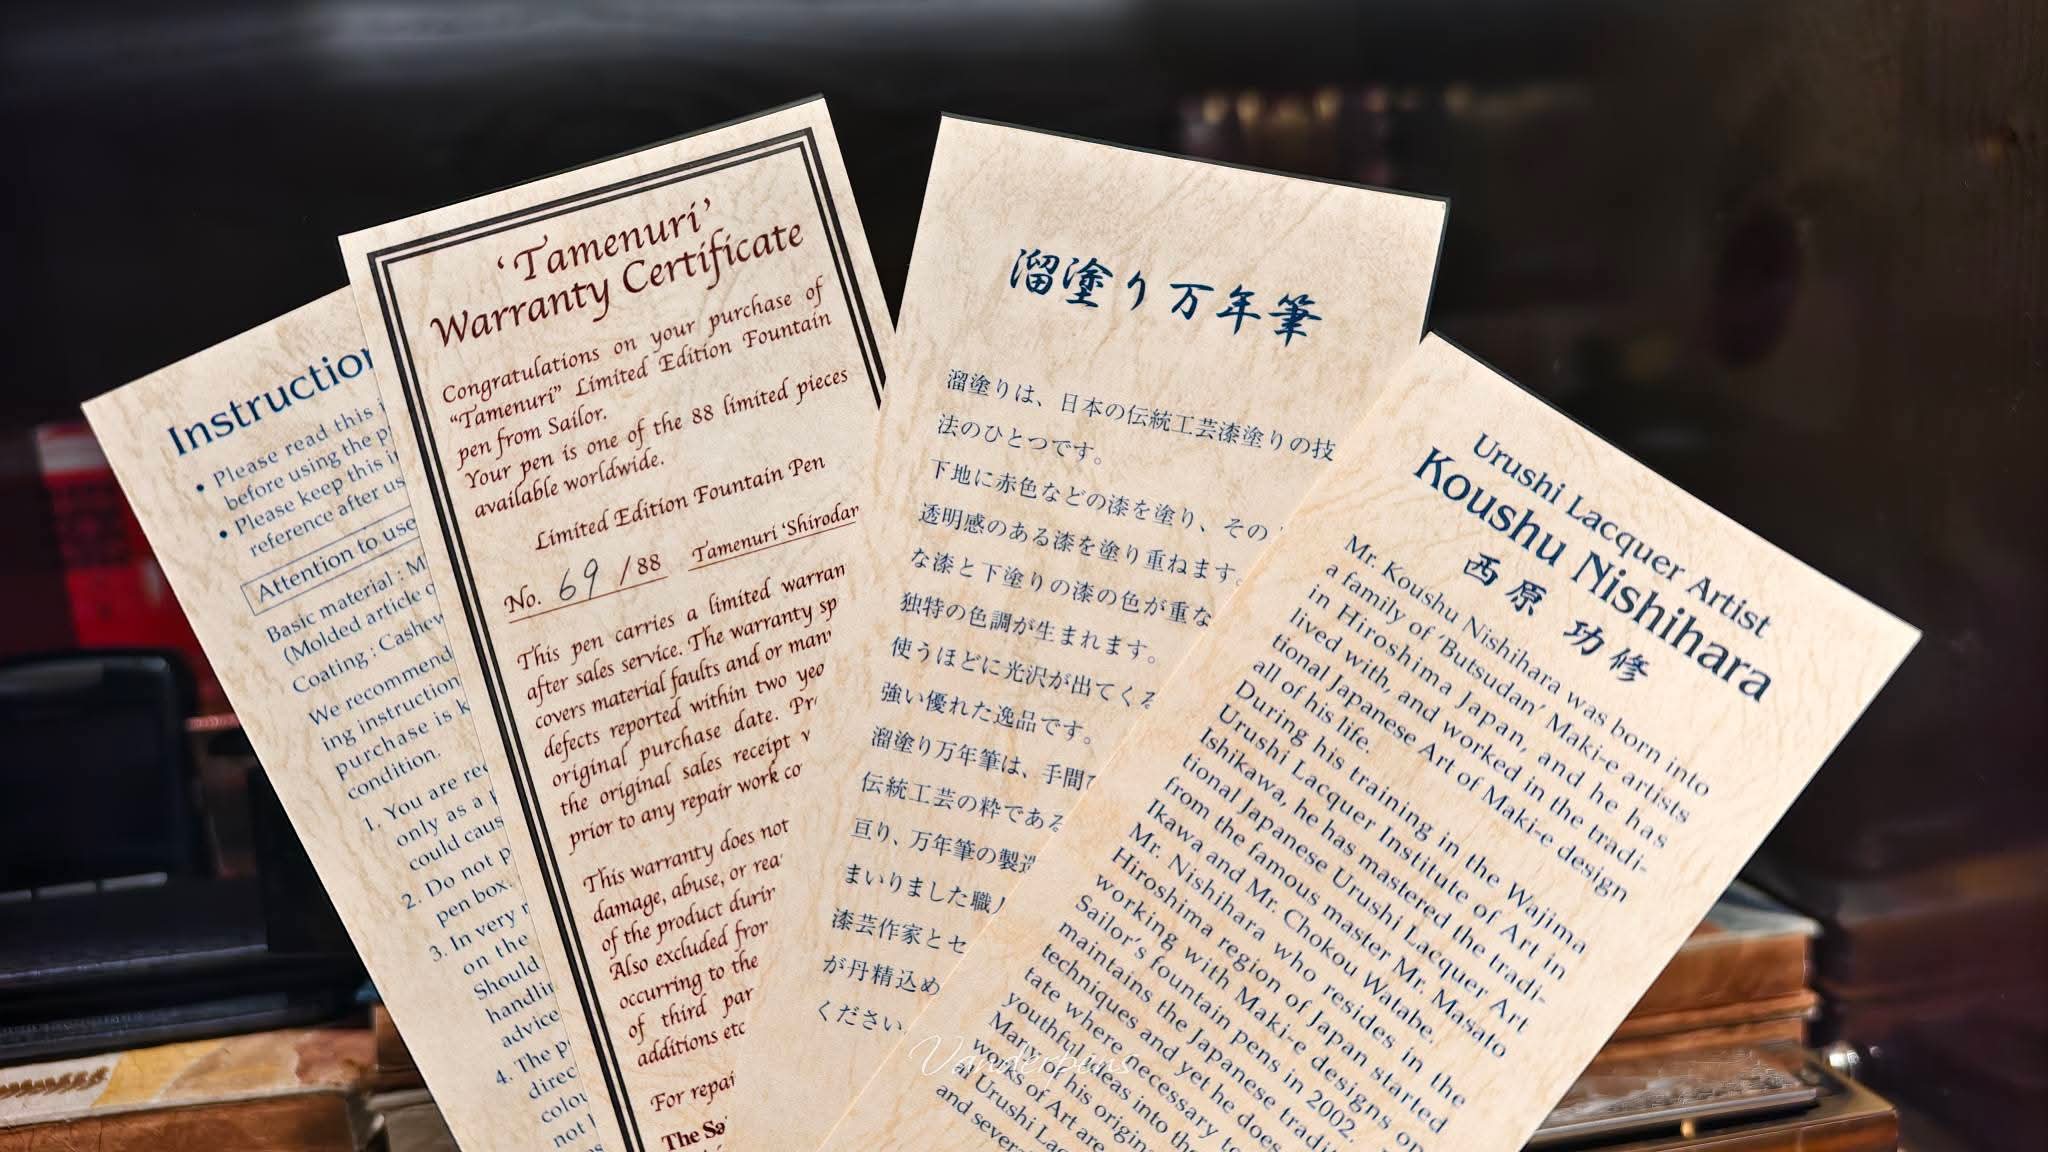 Instruction
• Please read this
before using the
• Please keep this
reference after
Attention to use
Basic material :
(Molded article
Coating : Cashew
We recommend
ing instruction
purchase is
condition.
1. You are
only as a
could
2. Do not
pen box.
3. In very
on the
Should
advice
4. The
not
'Tamenuri'
Warranty Certificate
Congratulations on your purchase of
"Tamenuri" Limited Edition Fountain
pen from Sailor.
Your pen is one of the 88 limited pieces
available worldwide.
Limited Edition Fountain Pen
No. 69 /88 Tamenuri
This pen carries a limited
after sales service. The warranty
covers material faults and or
defects reported within two
original purchase date.
the original sales receipt
prior to any repair work
This warranty does not
damage, abuse, or
of the product
Also excluded
occurring to the
of third
additions etc
For
The
溜塗り万年筆
溜塗りは、日本の伝統工芸漆塗りの技
法のひとつです。
下地に赤色などの漆を塗り、その
透明感のある漆を塗り重ねます。
な漆と下塗りの漆の色が重な
独特の色調が生まれます。
使うほどに光沢が出てくる
強い優れた逸品です。
溜塗り万年筆は、手間
伝統工芸の粋である
亘り、万年筆の製造
まいりました職
漆芸作家とセ
が丹精込め
ください
Urushi Lacquer Artist
Koushu Nishihara
西原 功修
Mr. Koushu Nishihara was born into
a family of 'Butsudan' Maki-e artists
in Hiroshima Japan, and he has
lived with, and worked in the tradi-
tional Japanese Art of Maki-e design
all of his life.
During his training in the Wajima
Urushi Lacquer Institute of Art in
Ishikawa, he has mastered the tradi-
tional Japanese Urushi Lacquer Art
from the famous master Mr. Masato
Ikawa and Mr. Chokou Watabe.
Mr. Nishihara who resides in the
Hiroshima region of Japan started
working with Maki-e designs on
Sailor's fountain pens in 2002.
maintains the Japanese
techniques and yet he does
tate where necessary to
youthful ideas into the
Many of his
works of Art are
of Urushi
and
Vanderpens